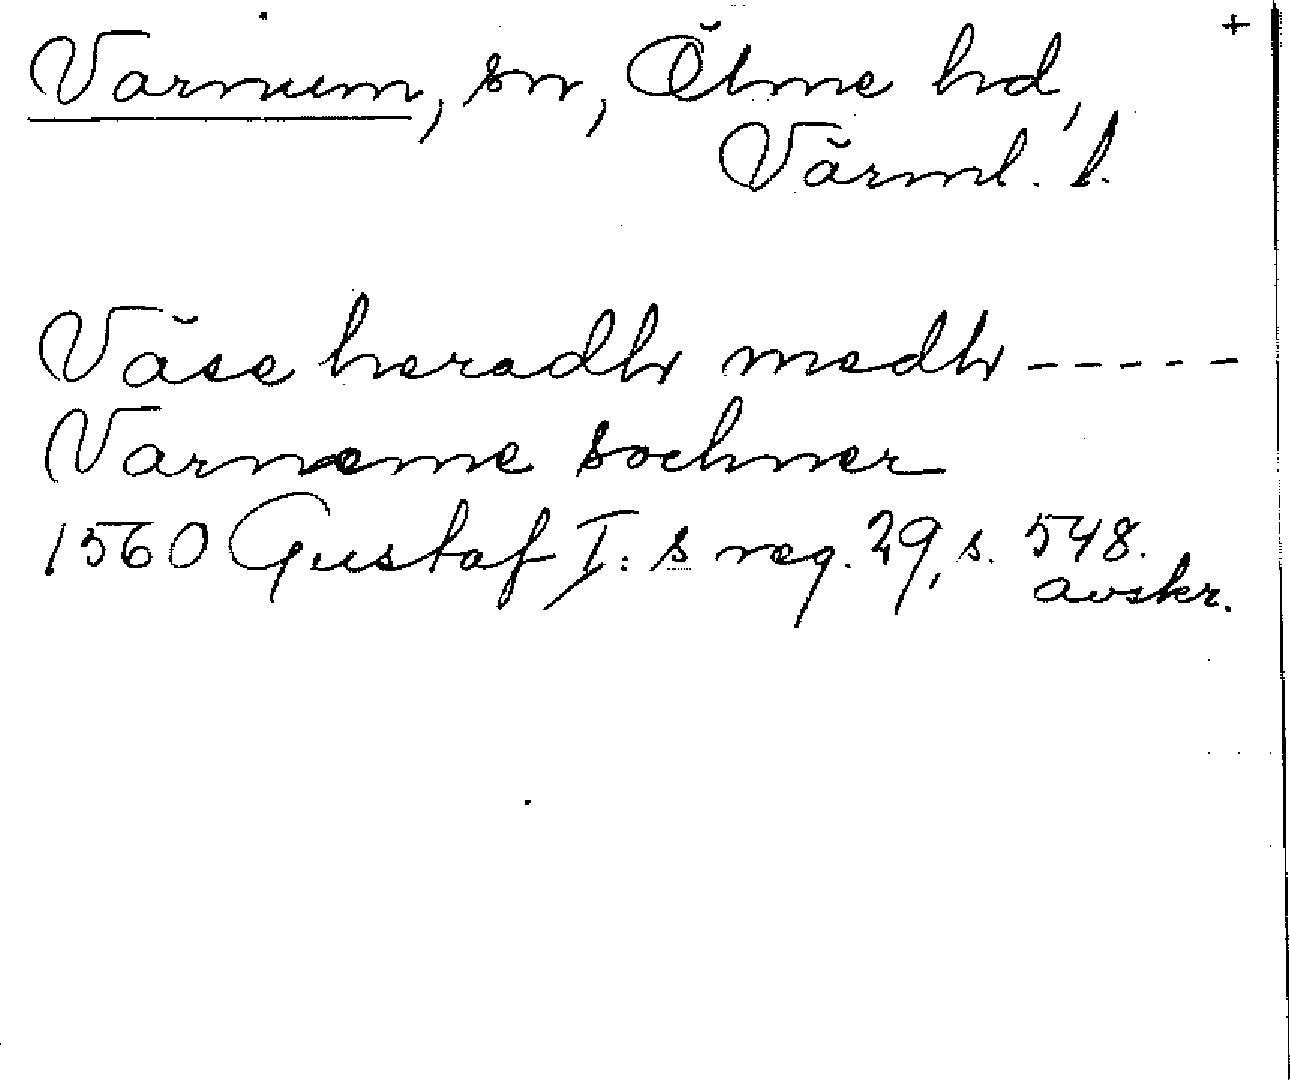 +
Varnum, sn, Ölme hd,
Värml. l.
Väse heradh medh -----
Varneme sochner
1560 Gustaf I:s reg. 29, s. 548.
avskr.